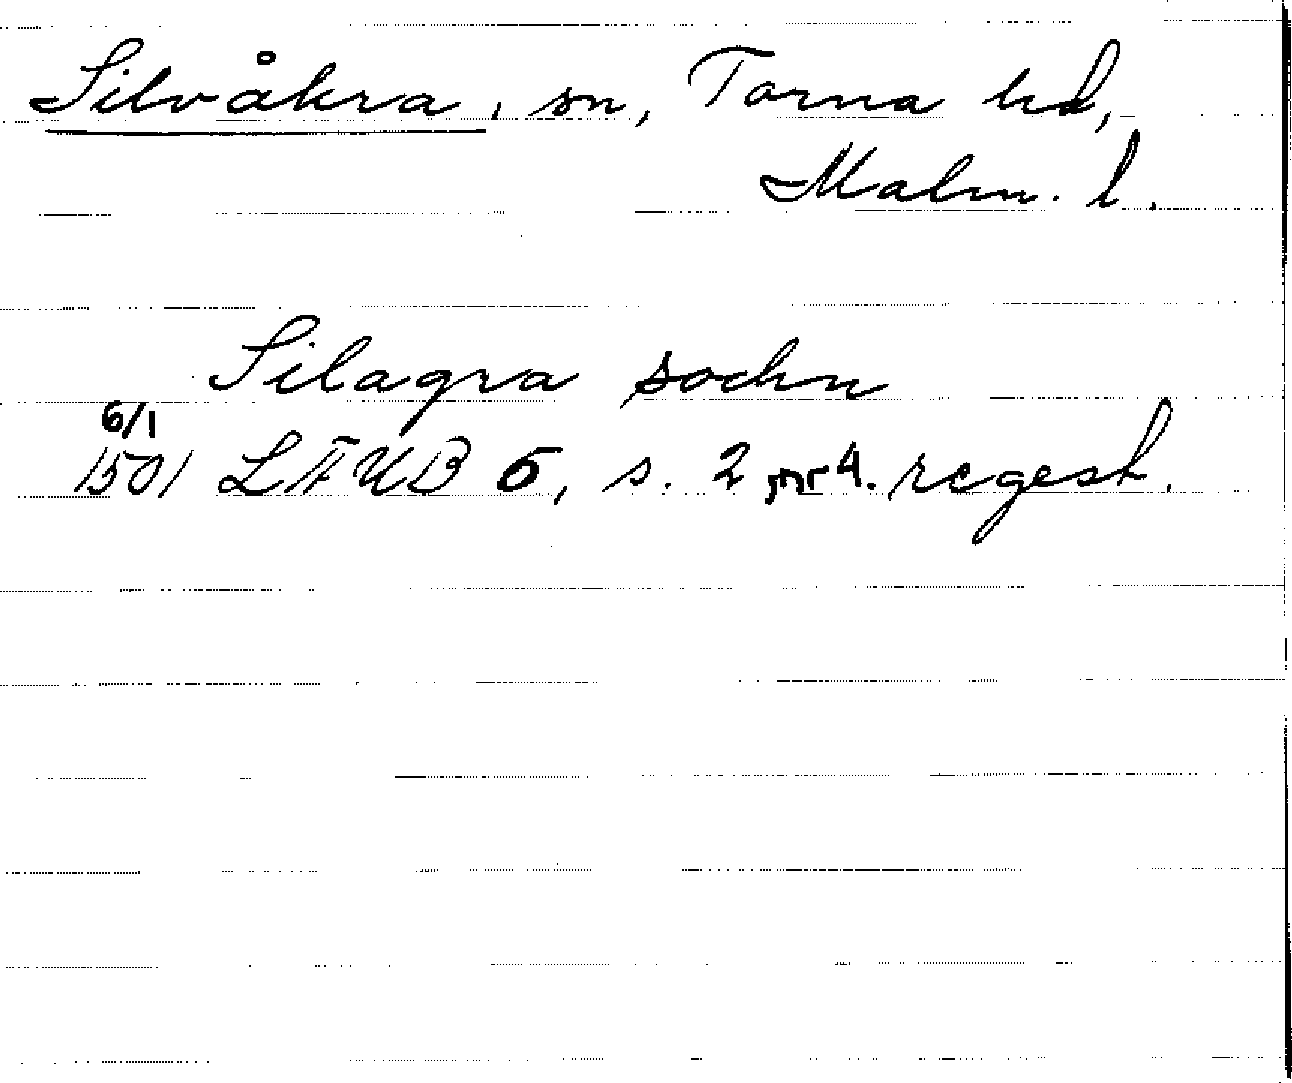 Silvåkra, sn, Torna hd,
Malm. l.
Silagra sochn
6/1
1501 LÄUB 6, s. 2, nr 4. regest.